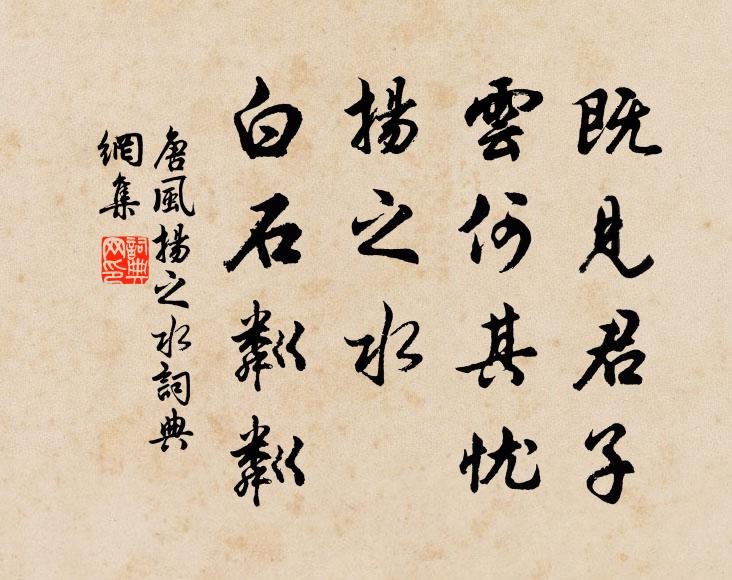 既見君子
雲何其忧
揚之水
白石粼粼
唐風揚之水詞典
網集
詞典網印